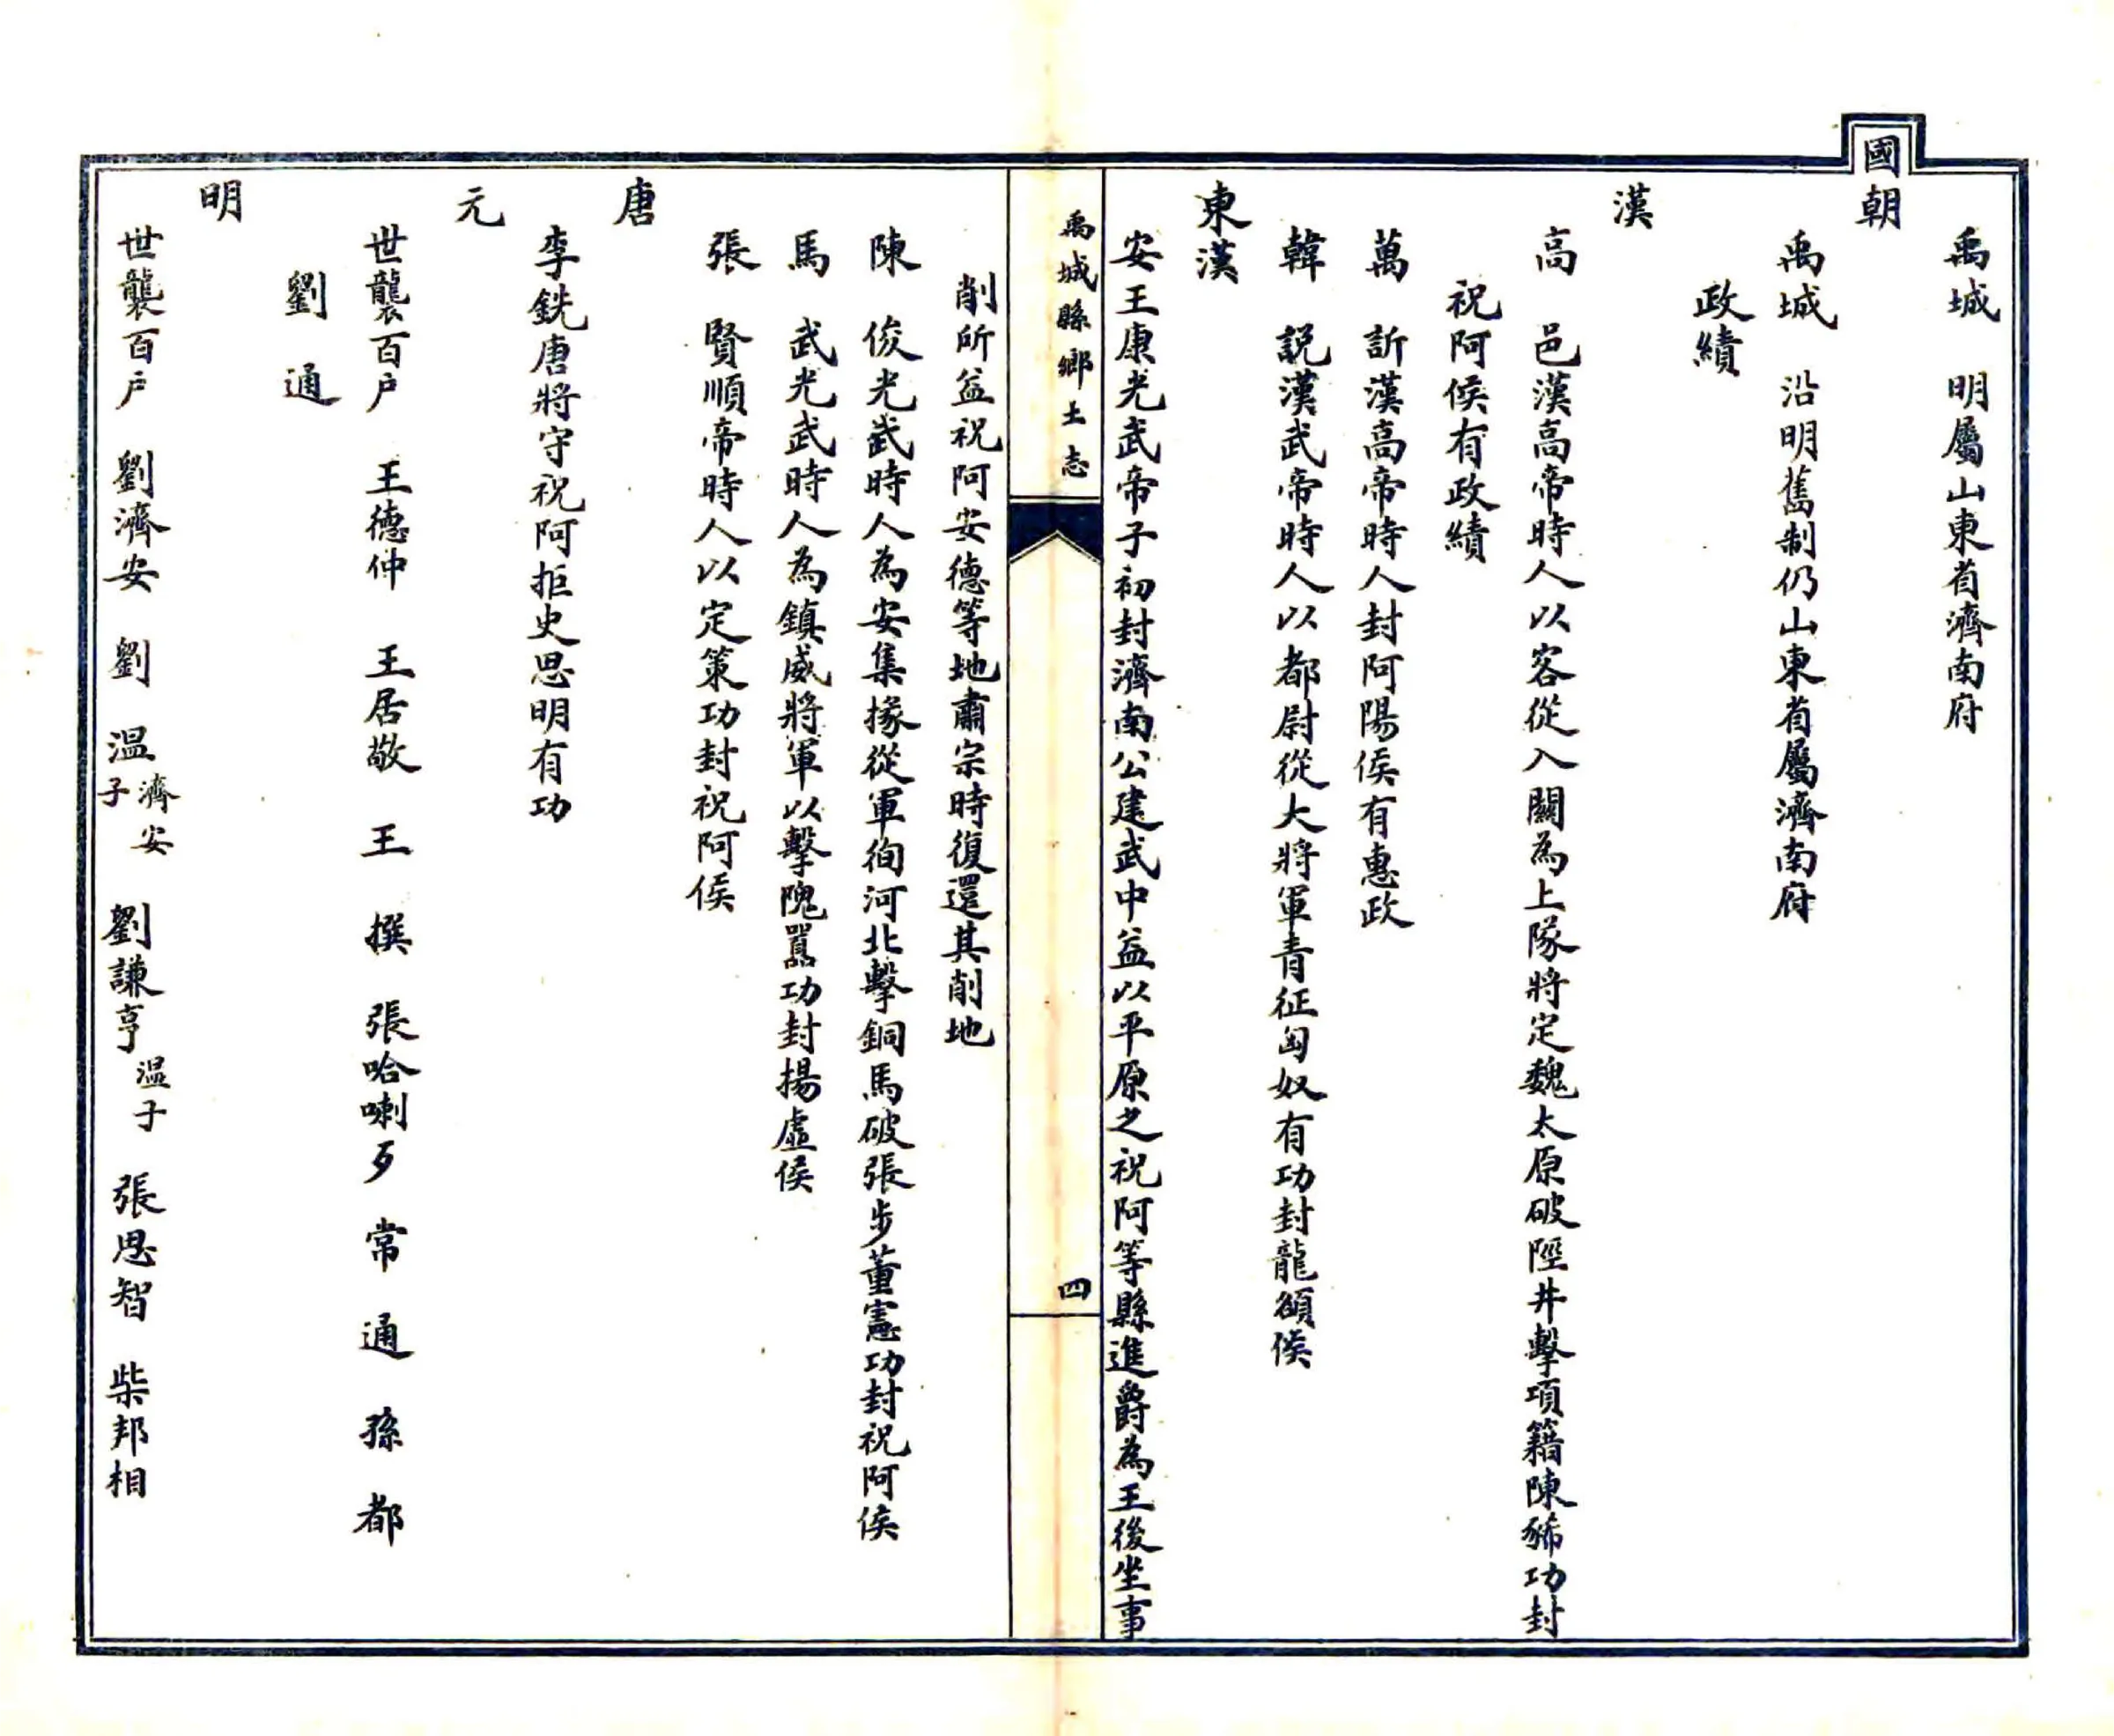 禹城　明屬山東省濟南府
國朝
禹城　沿明舊制仍山東省屬濟南府
政績
漢
高　邑漢高帝時人以客從入關為上隊將定魏太原破陘井擊項籍陳豨功封
祝阿侯有政績
萬　訢漢高帝時人封阿陽侯有惠政
韓　說漢武帝時人以都尉從大將軍青征匈奴有功封龍頟侯
東漢
安王康光武帝子初封濟南公建武中益以平原之祝阿等縣進爵為王後坐事
禹城縣鄉土志
四
削所益祝阿安德等地肅宗時復還其削地
陳　俊光武時人為安集掾從軍徇河北擊銅馬破張步董憲功封祝阿侯
馬　武光武時人為鎮威將軍以擊隗囂功封揚虛侯
張　賢順帝時人以定策功封祝阿侯
唐
李銑唐將守祝阿拒史思明有功
元
世襲百户　王德仲　王居敬　王　撰　張哈喇歹　常　通　孫　都
劉　通
明
世襲百户　劉濟安　劉　温濟安子　劉謙亨温子　張思智　柴邦相